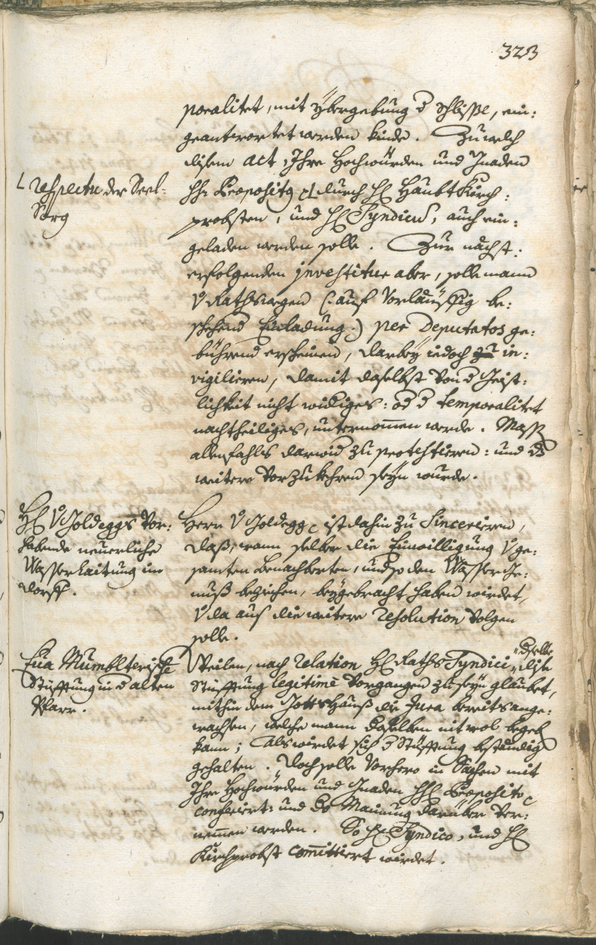 323
poralitet, mit Ybergebung d Schlissl, ein:
geantwortet werden künde. Zu welch
disem act, Ihre Hochwürden und Gnaden
Hh: Praepositg durch Hl: Haubt Kirch:
probsten, und Hl: Syndicus, auch ein:
geladen werden solle. Zur nächst:
erfolgenden jnvestitur aber, solle mann
V Rathswegen (: auf vorläuffig be:
schehend Einladung :) per Deputatos ge:
bührend erscheinen, darbey iedoch in:
vigilieren, damit daselbst von d Geist:
lichkeit nicht widriges: od d temporalitet
nachtheiliges, unternommen werde. Mass
allenfahls darwid zu protestieren: und dß
weitere vorzukhren seyn wurde.
L respectu der Seel:
Sorg
Hl: V Goldeggs vor:
habende neuerliche
Wasserlaitung im
dorff.
Herr V Goldegg ist dahin zu sincerieren,
daß, wann selber die Einwilligung V ge:
samten benachberten, und so den Wasser Ge:
nuß beziehen, beygebracht haben wirdet,
V da aus die weitere resolution volgen
solle.
Eua Mumblterische
Stüfftung in d alten
Pfarr.
Weilen, nach relation Hl: Raths Syndici, dise
Stüfftung legitime vorgangen zu seyn glaubet,
mithin dem Gottshauß die Jura bereits ange:
wachsen, welche mann daselben nit wol
kann; Als wirdet sich d Stüfftung beständig
gehalten. Doch solle vorhero in Sachen mit
Ihre Hochwürden und Gnaden Hh: Praeposito
conferiert: und die Mainung darüber ver:
nommen werden. So Hl: Syndico, und Hl:
Kirchprobst committiert wirdet.